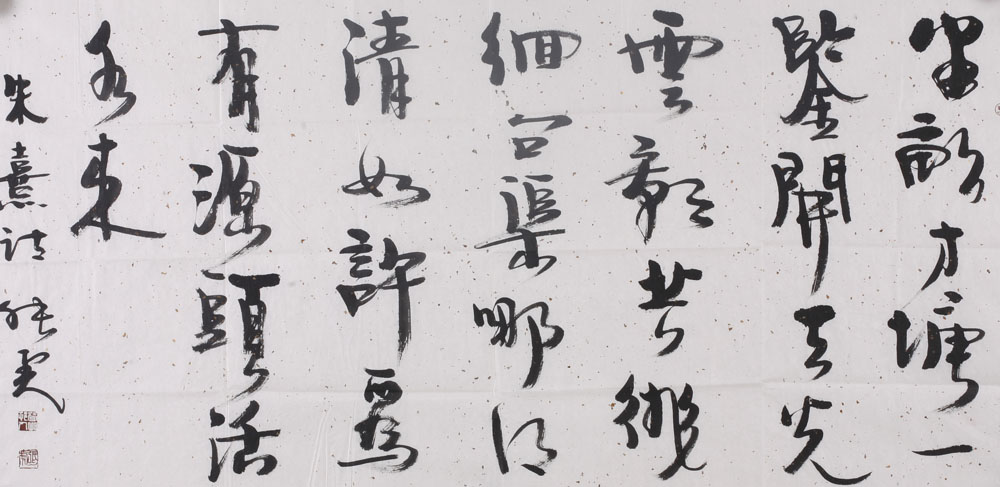 半畝方塘一
鑒開天光
雲影共徘
徊問渠哪得
清如許為
有源頭活
水來
朱熹詩